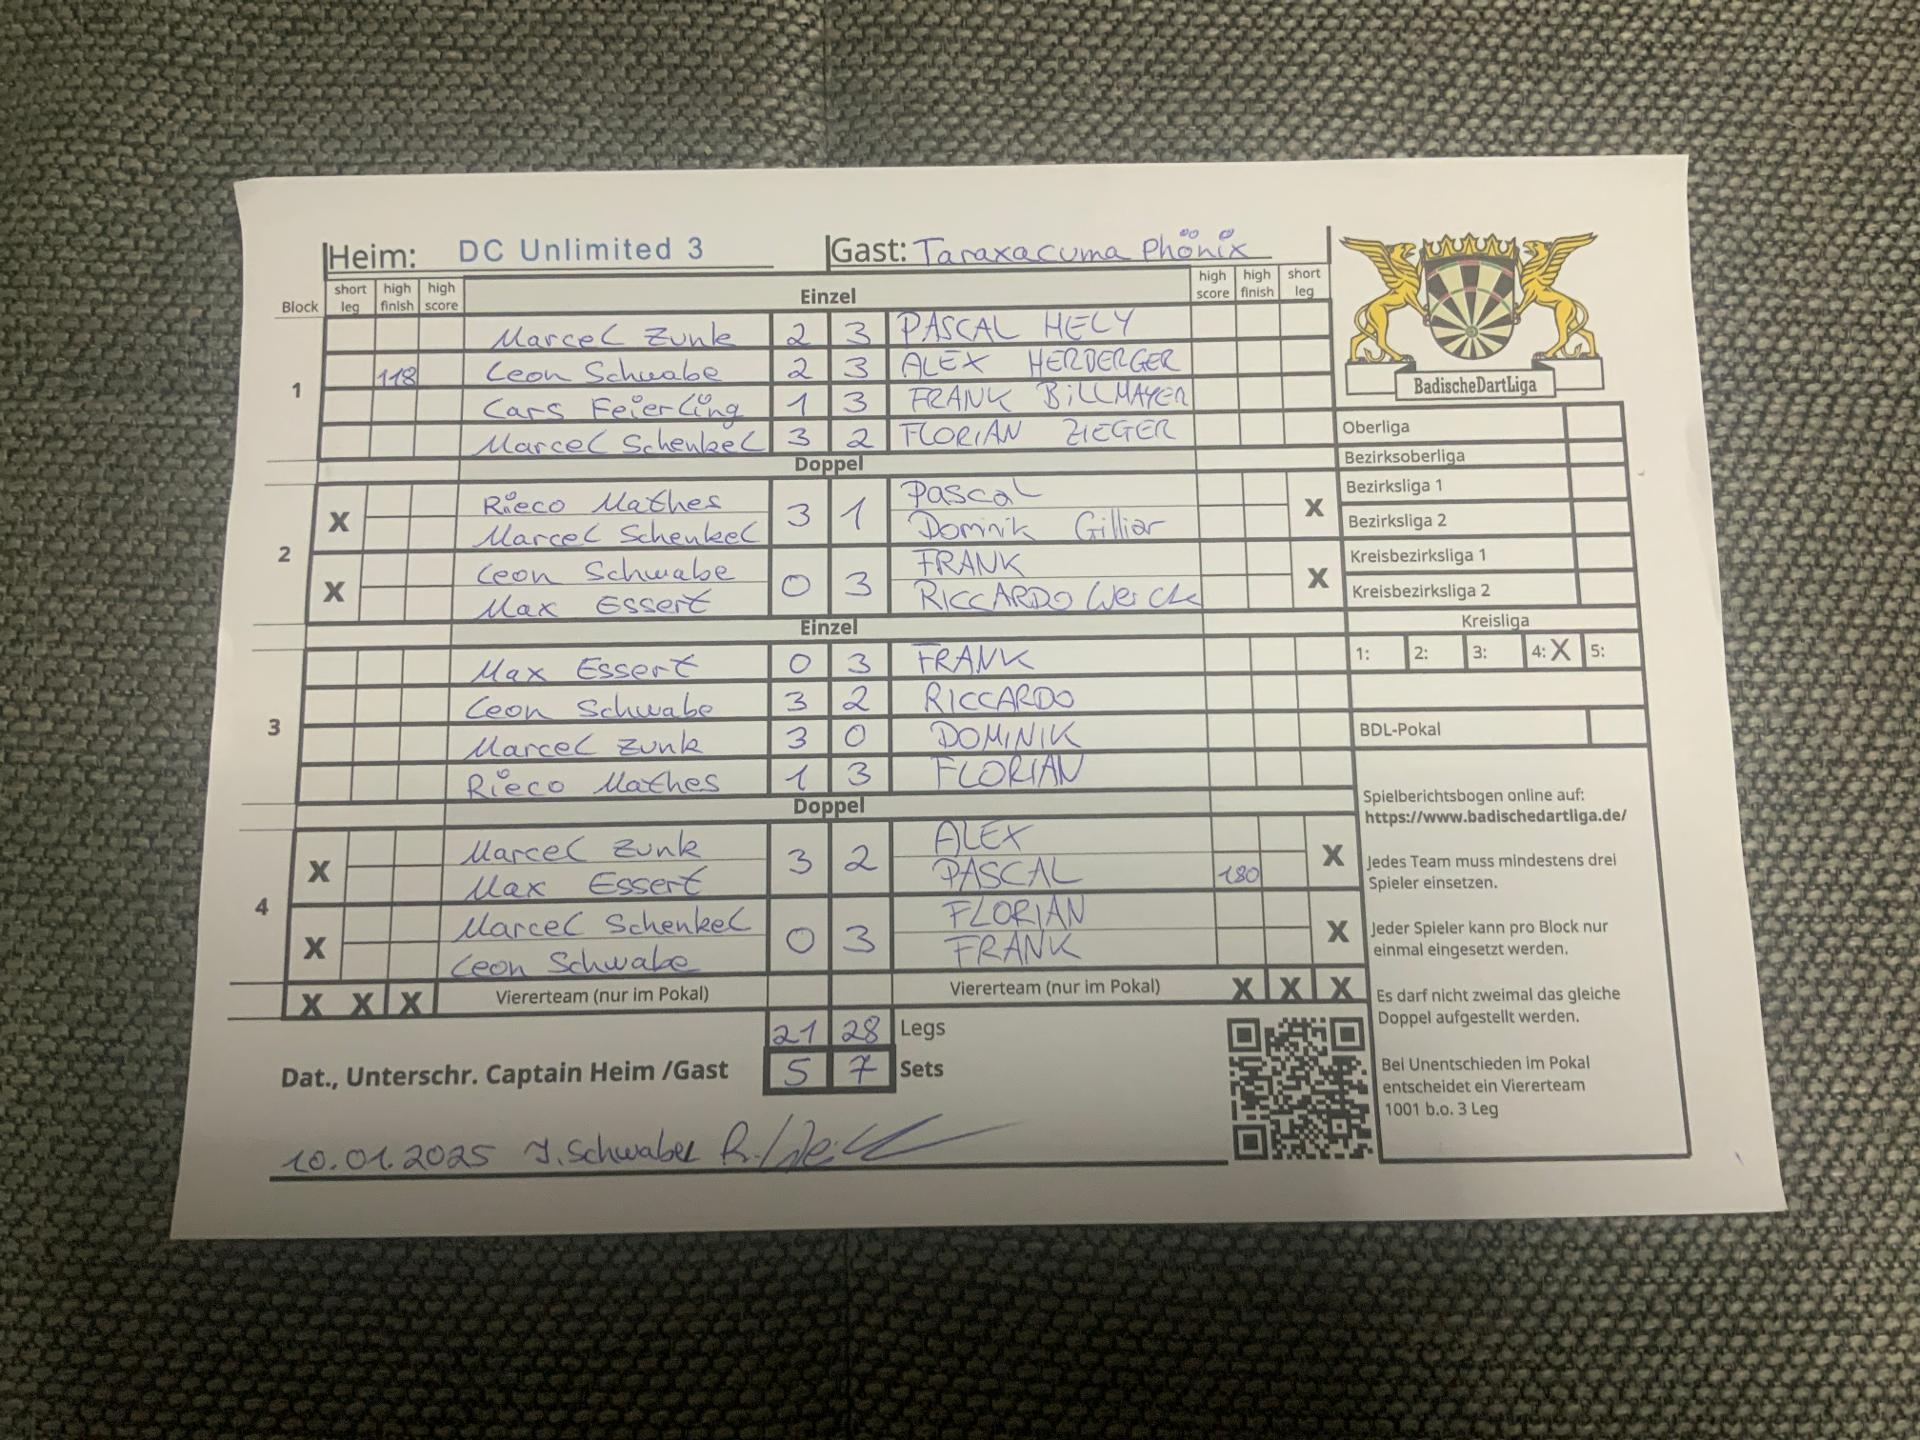 Heim: DC Unlimited 3 Gast: Taraxacuma Phönix
Block short leg high finish high score Einzel high score high finish short leg
1
Marcel Zunk 2 3 PASCAL HELY
118 Leon Schwabe 2 3 ALEX HERBERGER
Lars Feierling 1 3 FRANK BILLMAYER
Marcel Schenkel 3 2 FLORIAN ZIEGER
Doppel
2
X Rieco Mathes 3 1 Pascal X
Marcel Schenkel Dominik Gilliar
X Leon Schwabe 0 3 FRANK X
Max Essert RICCARDO Werck
Einzel
3
Max Essert 0 3 FRANK
Leon Schwabe 3 2 RICCARDO
Marcel Zunk 3 0 DOMINIK
Rieco Mathes 1 3 FLORIAN
Doppel
4
X Marcel Zunk 3 2 ALEX X
Max Essert PASCAL 180
X Marcel Schenkel 0 3 FLORIAN X
Leon Schwabe FRANK
X X X Viererteam (nur im Pokal) Viererteam (nur im Pokal) X X X
21 28 Legs
Dat., Unterschr. Captain Heim /Gast 5 7 Sets
10.01.2025 J. Schwaber
BadischeDartLiga
Oberliga
Bezirksoberliga
Bezirksliga 1
Bezirksliga 2
Kreisbezirksliga 1
Kreisbezirksliga 2
Kreisliga
1: 2: 3: 4: X 5:
BDL-Pokal
Spielberichtsbogen online auf:
https://www.badischedartliga.de/
Jedes Team muss mindestens drei
Spieler einsetzen.
Jeder Spieler kann pro Block nur
einmal eingesetzt werden.
Es darf nicht zweimal das gleiche
Doppel aufgestellt werden.
Bei Unentschieden im Pokal
entscheidet ein Viererteam
1001 b.o. 3 Leg